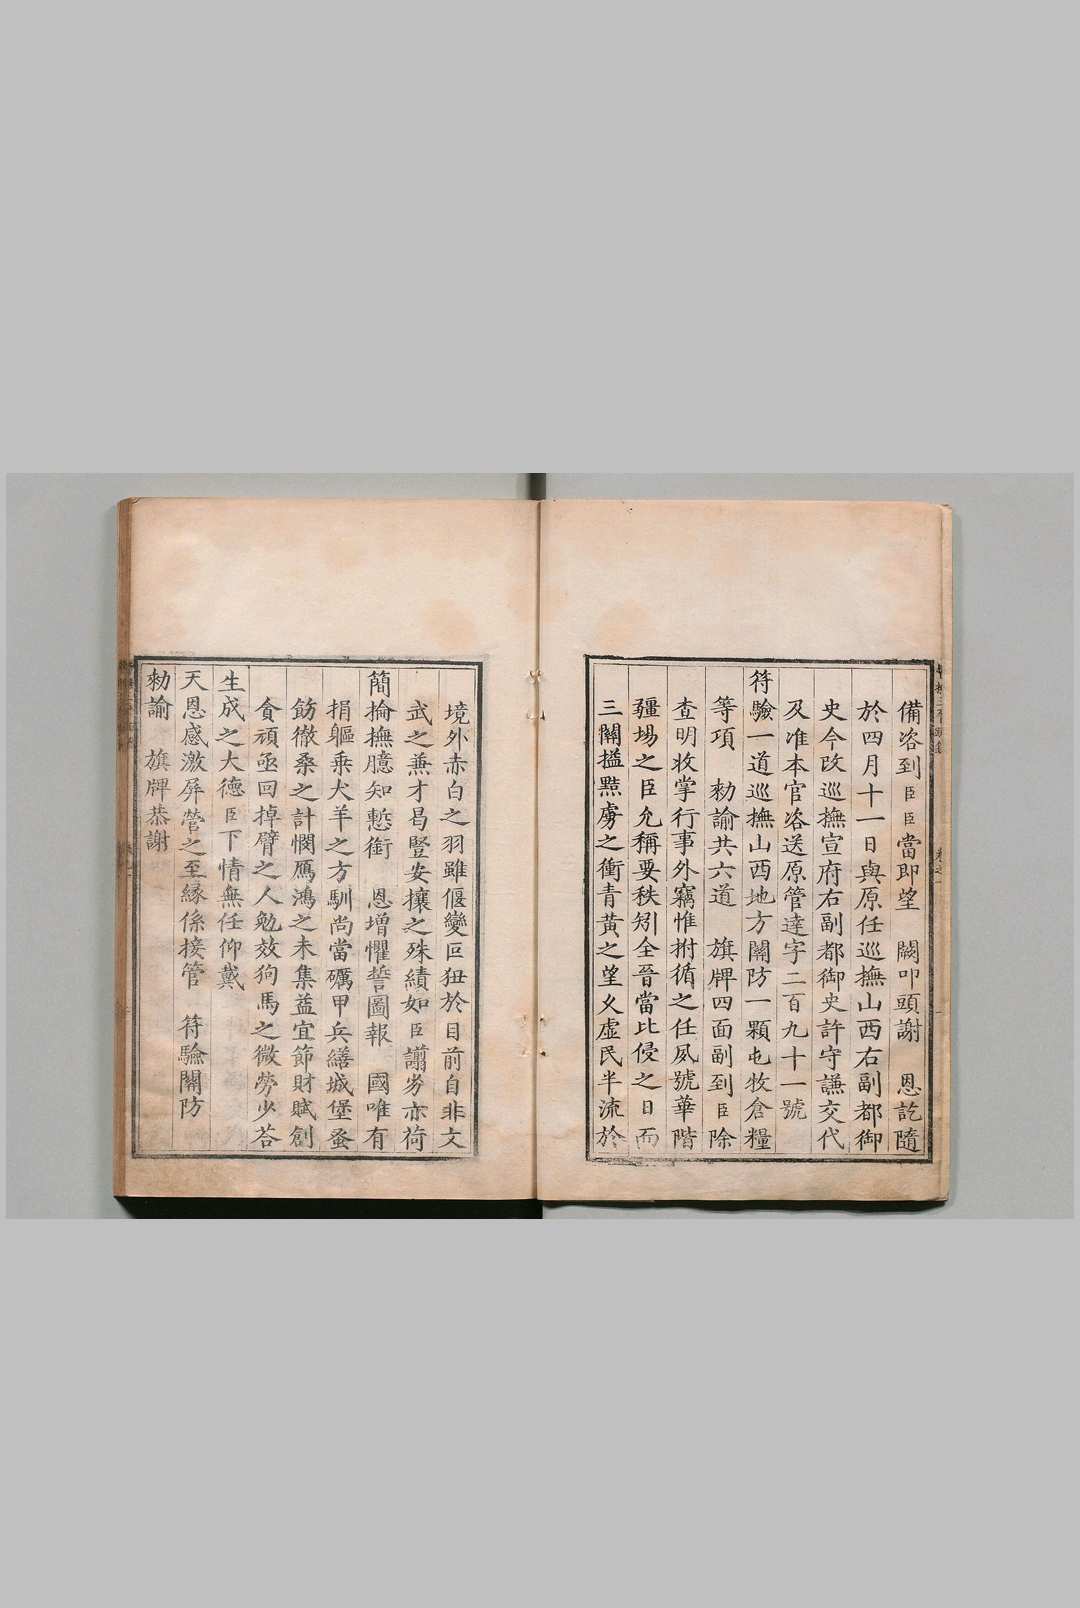 備咨到臣臣當即望　闕叩頭謝　恩訖隨
於四月十一日與原任巡撫山西右副都御
史今改巡撫宣府右副都御史許守謙交代
及准本官咨送原管達字二百九十一號
符驗一道巡撫山西地方關防一顆屯牧倉糧
等項　勑諭共六道　旗牌四面副到臣除
查明收掌行事外竊惟拊循之任風號華階
疆埸之臣允稱要秩矧全晉當比侵之日而
三關搤點虜之衝青黃之望乂虛民半流於
境外赤白之羽雖偃變叵狃於目前自非文
武之兼才曷豎安攘之殊績如臣譾劣亦荷
簡掄撫臆知慙銜　恩增懼誓圖報　國唯有
捐軀乘犬羊之方馴尚當礪甲兵繕城堡蚤
飭徹桑之計憫鴈鴻之未集益宜節財賦創
貪頑亟回掉臂之人勉效狗馬之微勞少荅
生成之大德臣下情無任仰戴
天恩感激屏營之至緣係接管　符驗關防
勑諭　旗牌恭謝